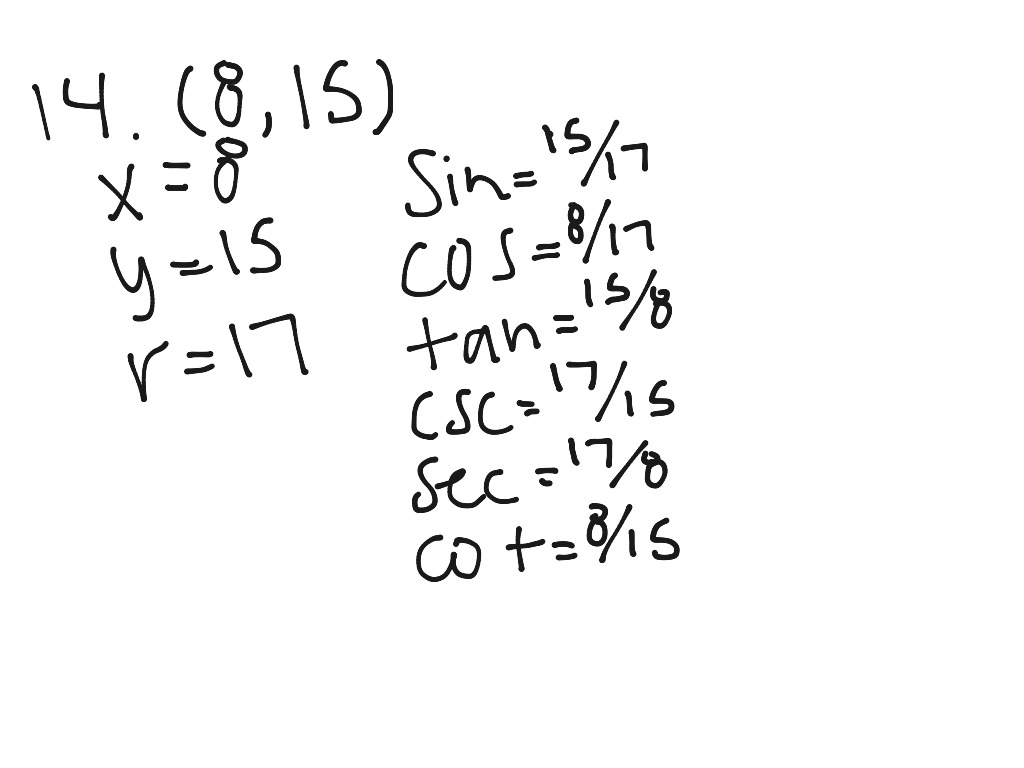 14. (8,15)
x=8
y=15
r=17
Sin=15/17
cos=8/17
tan=15/8
csc=17/15
sec=17/8
cot=8/15